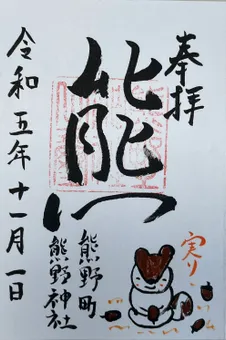 奉拝
実り
熊
熊野町
熊野神社
令和五年十一月一日